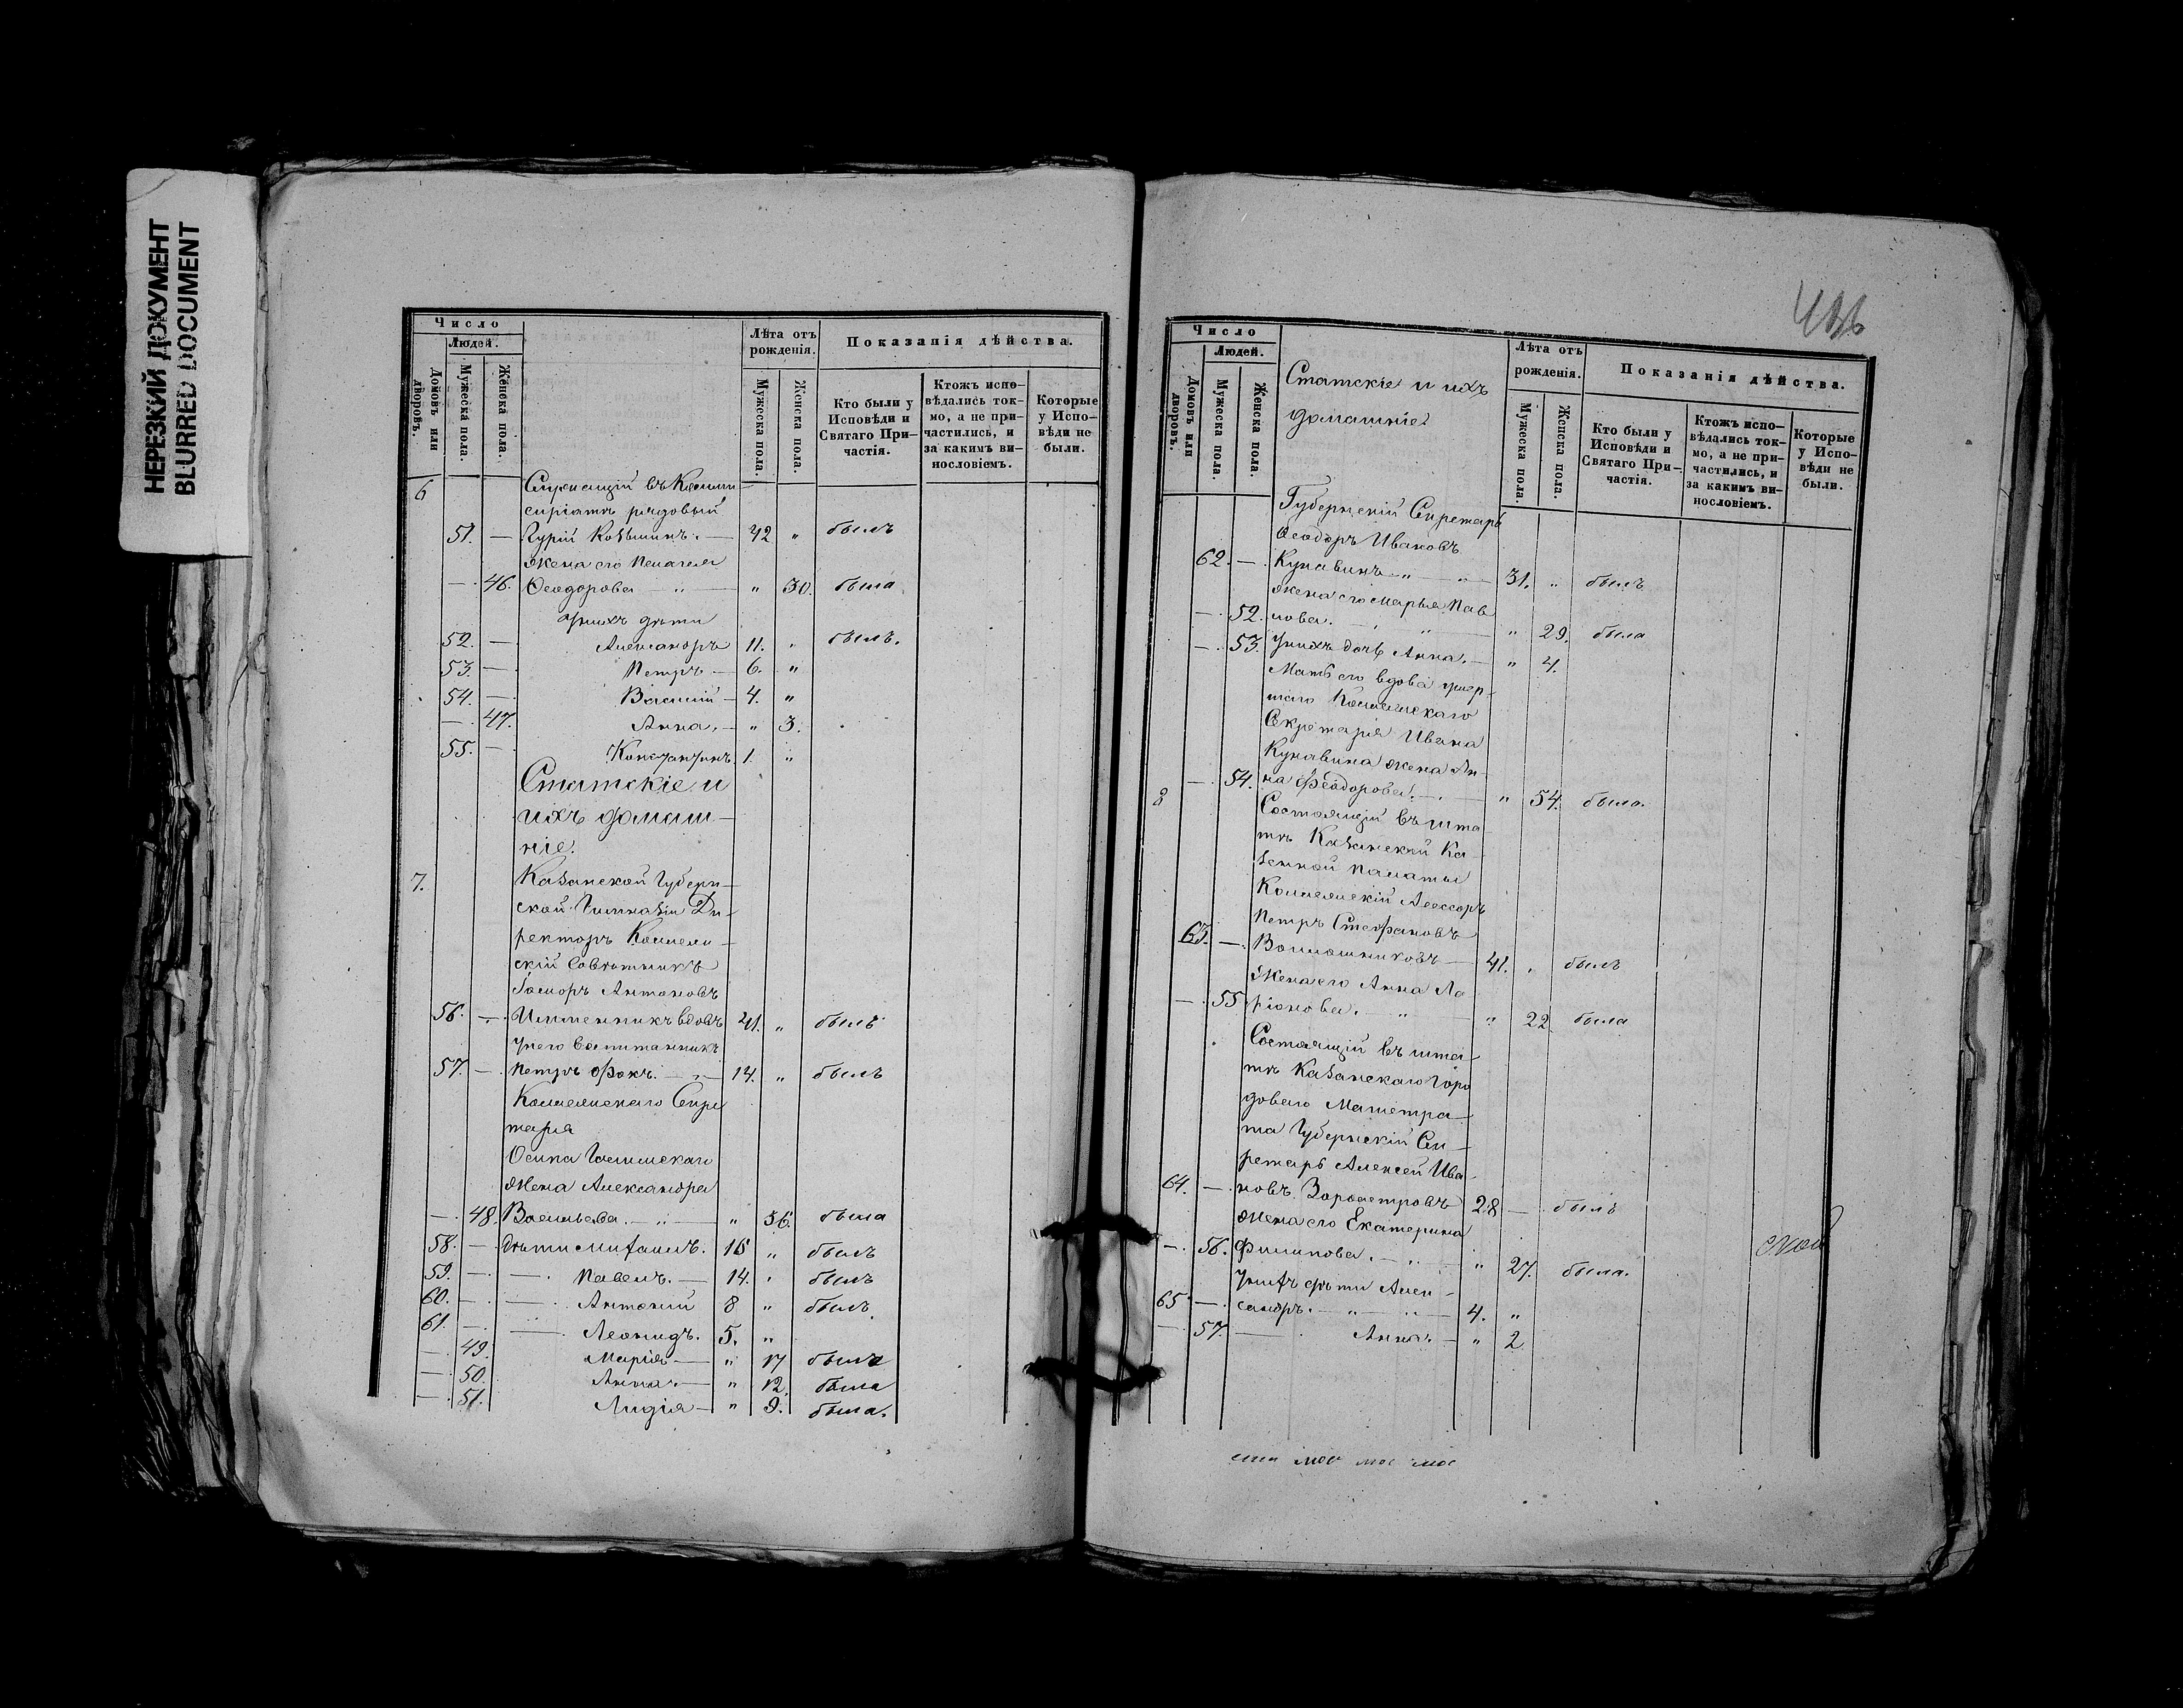 НЕРЕЗКИЙ ДОКУМЕНТ
BLURRED DOCUMENT
Число
Людей.
Домовъ или дворовъ.
Мужеска пола.
Женска пола.
Лѣта отъ рожденія.
Мужеска пола.
Женска пола.
Показанія дѣйства.
Кто были у Исповѣди и Святаго При-частія.
Ктожъ испо-вѣдались ток-мо, а не при-частились, и за какимъ ви-нословіемъ.
Которые у Испо-вѣди не были.
6 Служащій въ Комми-
сиріатѣ рядовый
51. — Гурій Козьминъ. — 42 " былъ
жена его Пелагея
— 46. Ѳеодорова — " — " 30. была
У нихъ дѣти
52. — Александръ 11. " былъ.
53. — Петръ — 6. "
54. — Василій — 4. "
— 47. Анна. — " 3.
55. — Константинъ. 1. "
Статскіе и
ихъ домаш-
ніе.
7. Казанской Губерн-
ской Гимназіи Ди-
ректоръ Коллеж-
скій Совѣтникъ
Антоновъ
56. — вдовъ 41. " былъ
У него воспитанникъ
57. — Петръ Фокъ. — " — 14. " былъ
Коллежскаго Секре
таря
Осипа
жена Александра
— 48. Васильева. — " — " 36. была
58. — Дѣти Михаилъ. 15 " былъ
59. — — Павелъ. — 14. " былъ
60. — — Антоній 8 " былъ
61. — — Леонидъ. 5. "
— 49. Марія — " 17 была
— 50. Анна. — " 12. была
— 51. Лидія — " 9. была.
Число
Людей.
Домовъ или дворовъ.
Мужеска пола.
Женска пола.
Статскіе и ихъ
домашніе
Лѣта отъ рожденія.
Мужеска пола.
Женска пола.
Показанія дѣйства.
Кто были у Исповѣди и Святаго При-частія.
Ктожъ испо-вѣдались ток-мо, а не при-частились, и за какимъ ви-нословіемъ.
Которые у Испо-вѣди не были.
Губернскій Секретарь
Ѳеодоръ Ивановъ
62. — Кунавинъ — " — 31. " былъ
жена его Марья Пав
— 52. лова. — " — " 29. была
— 53. У нихъ дочь Анна. — " 4.
Мать его вдова умер-
шаго Коллежскаго
Секретаря Ивана
Кунавина жена Ан-
— 54. на Феодорова. — " 54. была.
8 Состоящій въ шта
тѣ Казанской Ка-
зенной Палаты
Коллежскій Асессоръ
Петръ Стефановъ
63. — — 41. " былъ
Жена его Анна Ла
— 55 ріонова. — " — " 22 была
Состоящій въ шта-
тѣ Казанскаго Горо
доваго Магистра-
та Губернскій Сек-
ретарь Алексей Ива
64. — новъ Зороастровъ 28 — былъ
жена его Екатерина
— 56. Филипова. — " — " 27. была.
У нихъ дѣти Алек-
65. — сандръ. — " — 4. "
— 57. — Анна. — " 2.